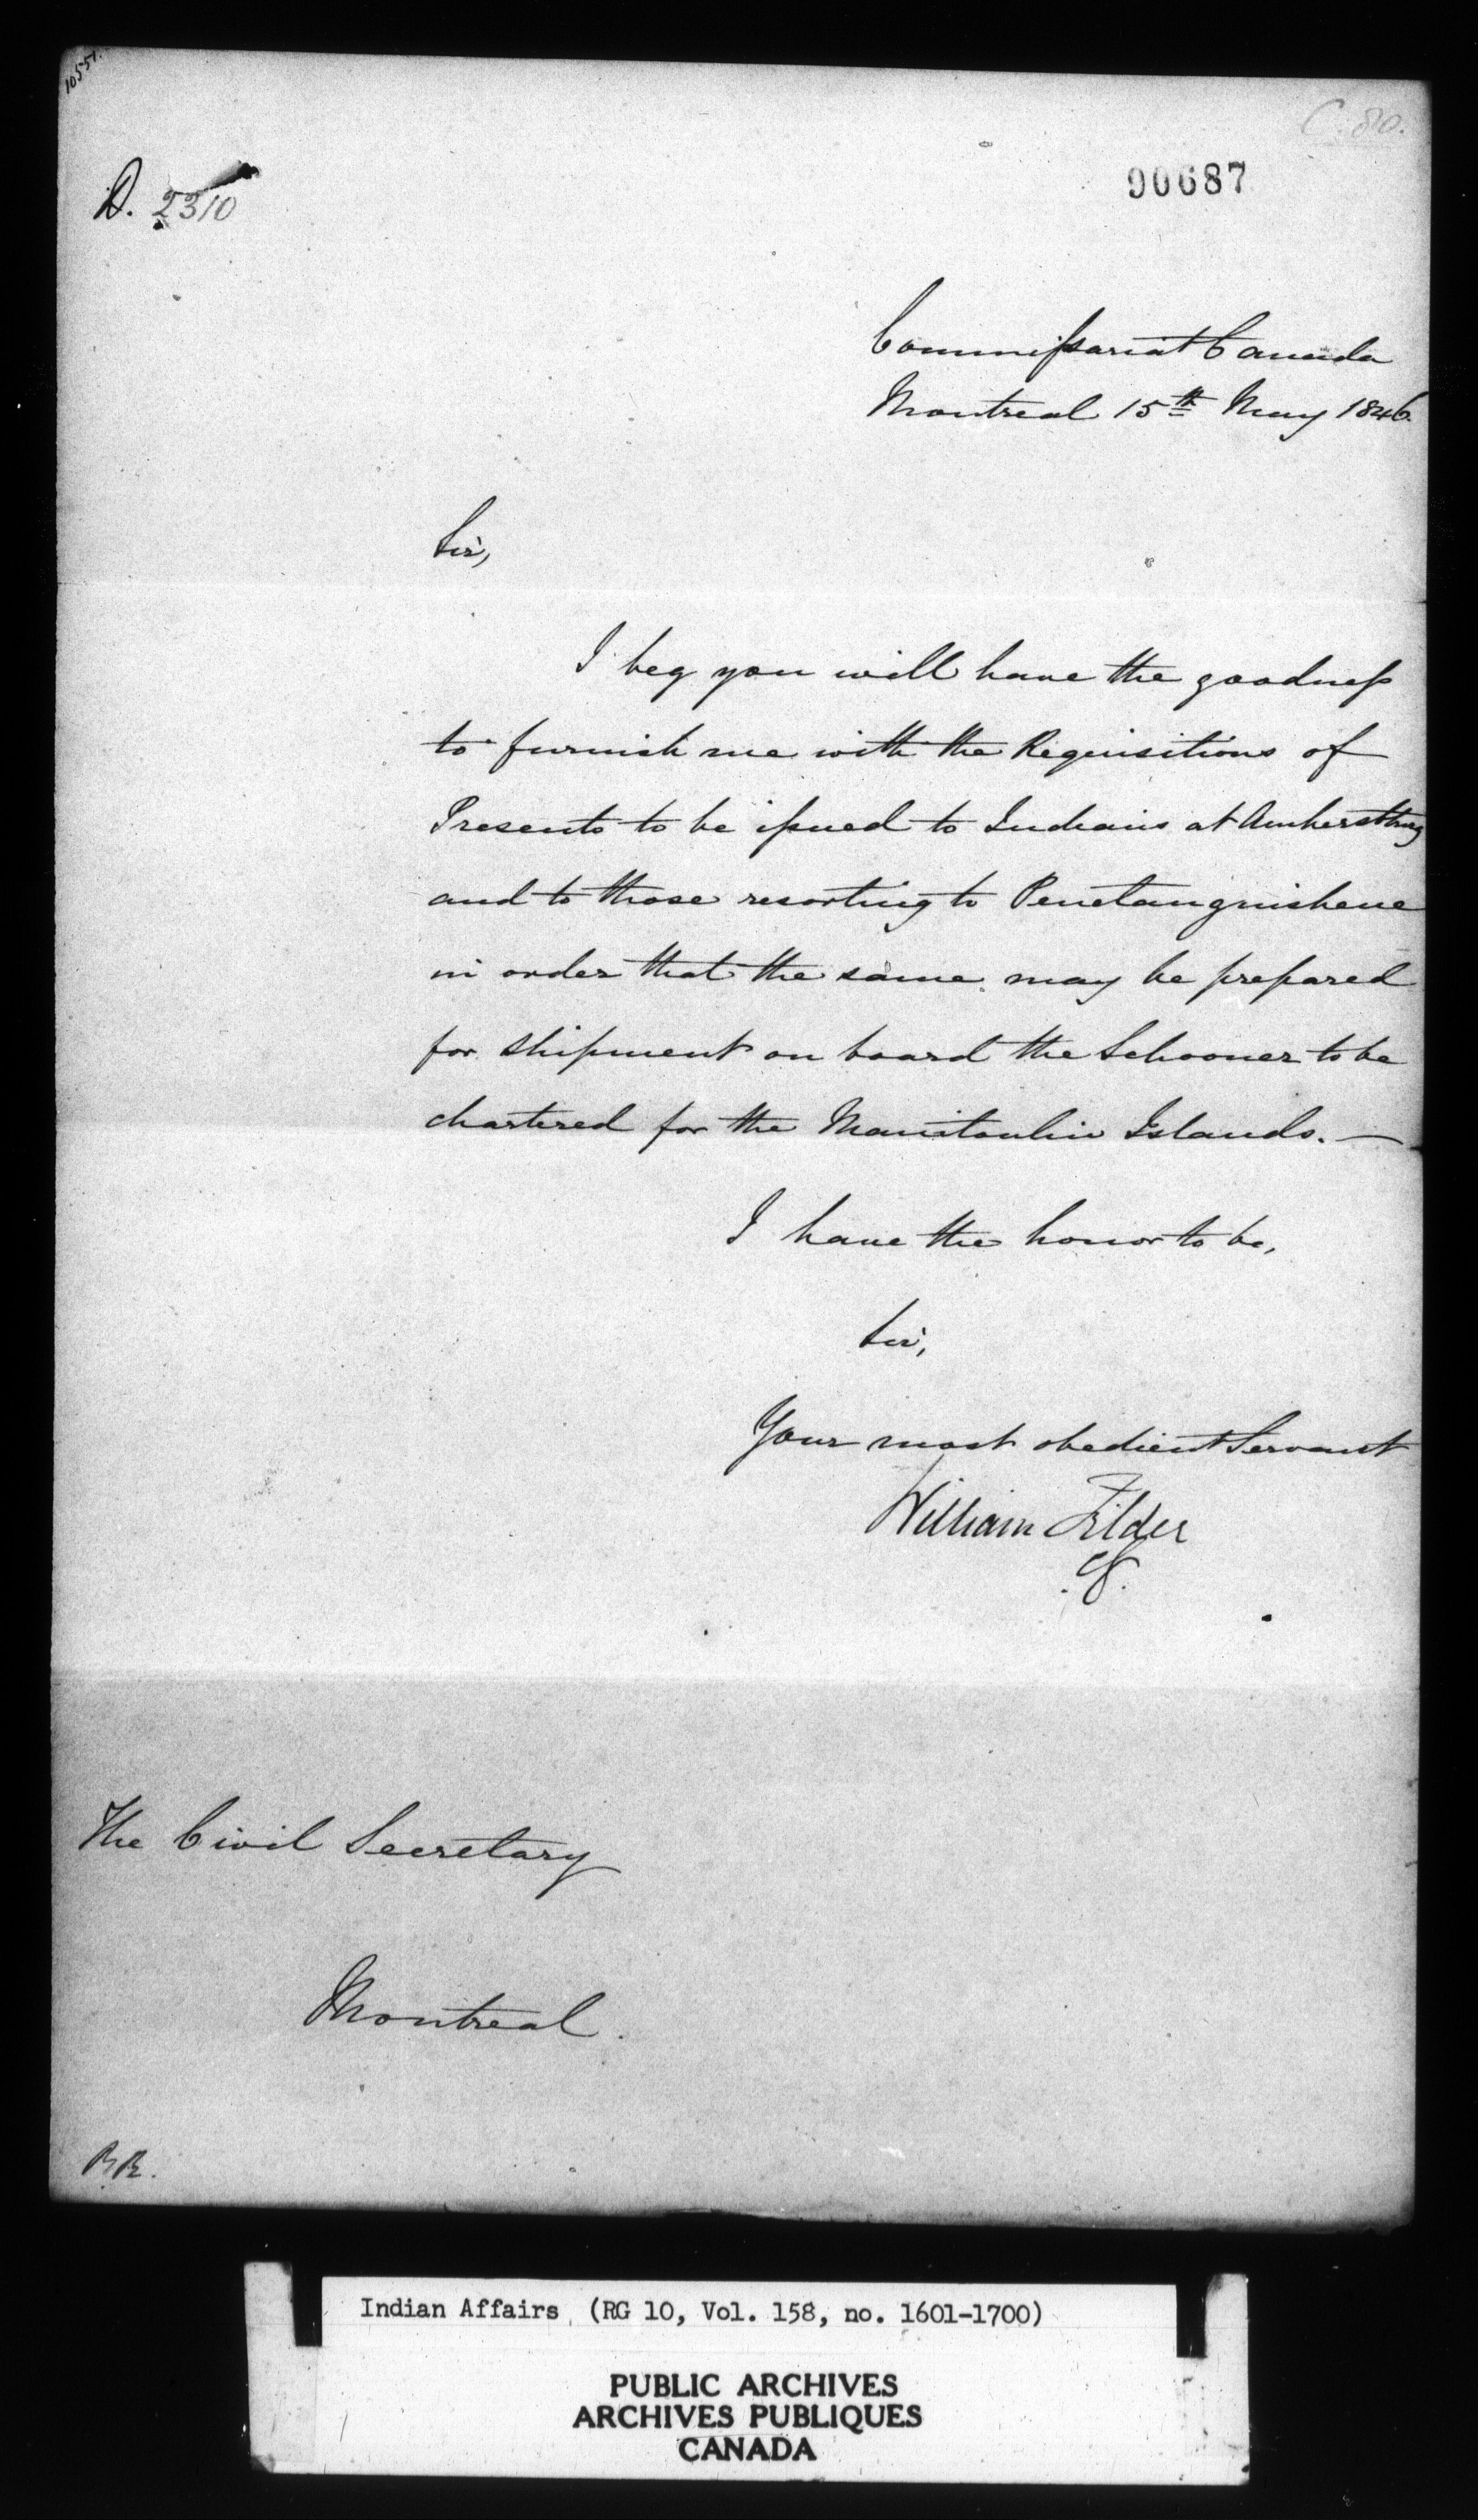 10551.
C. 80.
D. 2310
90687
Commissariat Canada
Montreal 15th May 1846.
Sir,
I beg you will have the goodness
to furnish me with the Requisitions of
Presents to be issued to Indians at Amherstburg
and to those resorting to Penetanguishene
in order that the same may be prepared
for shipment on board the Schooner to be
chartered for the Manitoulin Islands. —
I have the honor to be,
Sir,
Your most obedient Servant
William Filder
The Civil Secretary
Montreal.
Indian Affairs (RG 10, Vol. 158, no. 1601-1700)
PUBLIC ARCHIVES
ARCHIVES PUBLIQUES
CANADA